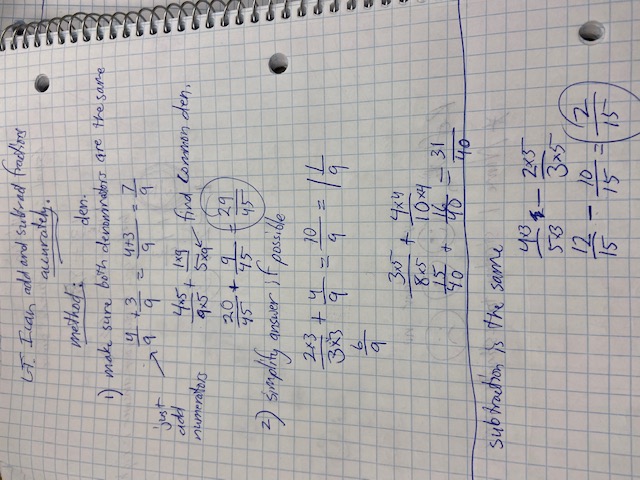 LT. I can add and subtract fractions
accurately.
method: den.
1) make sure both denominators are the same
4/9 + 3/9 = 4+3/9 = 7/9
just
add
numerators
4x5/9x5 + 1x9/5x9 find common den.
20/45 + 9/45 = 29/45
2) simplify answer if possible
2x3/3x3 + 4/9 = 10/9 = 1 1/9
6/9
3x5/8x5 + 4x4/10x4
15/40 + 16/40 = 31/40
subtraction is the same
4x3/5x3 - 2x5/3x5
12/15 - 10/15 = 2/15